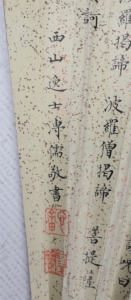 羅揭諦
波羅僧揭諦
菩提薩
訶
西山逸士溥儒敬書